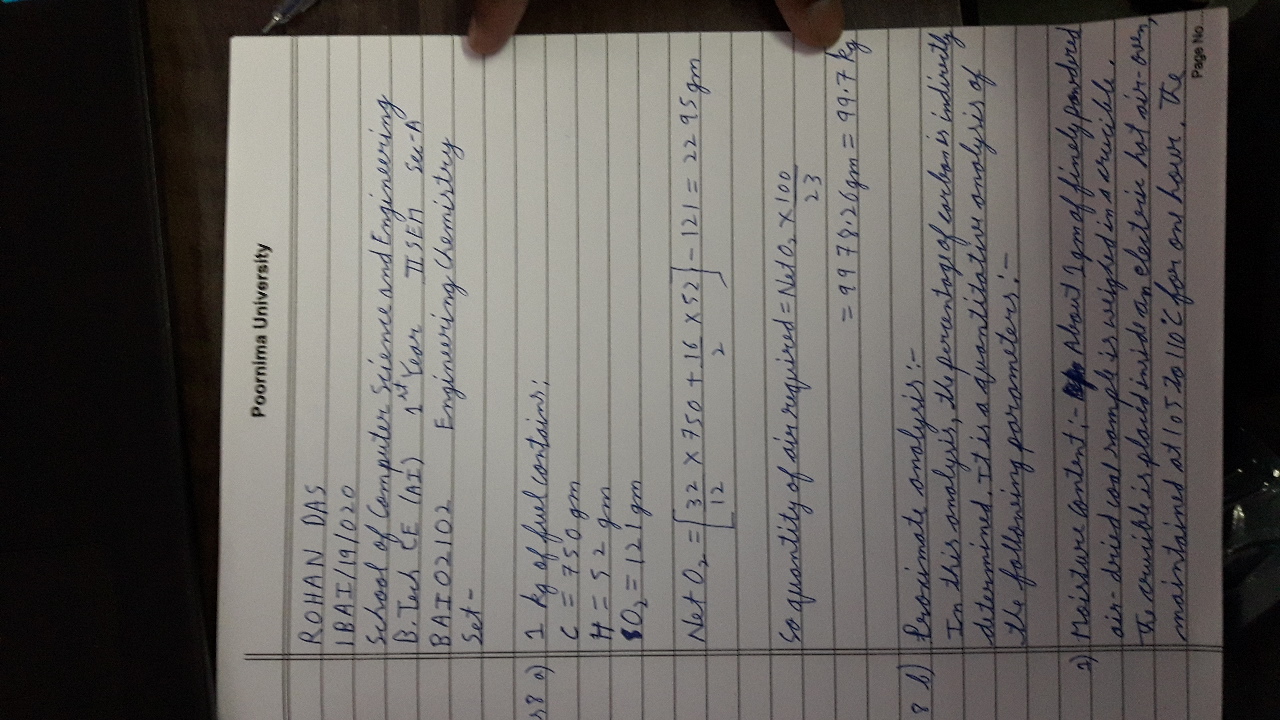 Poornima University
ROHAN DAS
1BAI/19/020
School of Computer Science and Engineering
B.Tech CE (AI) 1st Year II SEM Sec-A
BAI02102 Engineering Chemistry
Set -
8 a) 1 kg of fuel contains:
C = 750 gm
H = 52 gm
O₂ = 121 gm
Net O₂ = [32/12 × 750 + 16/2 × 52] - 121 = 2295 gm
So quantity of air required = Net O₂ × 100/23
= 9978.26 gm = 99.7 kg
8 b) Proximate analysis:-
In this analysis, the percentage of carbon is indirectly
determined. It is a quantitative analysis of
the following parameters:-
1) Moisture content:- About 1 gm of finely powdered
air-dried coal sample is weighed in a crucible.
The crucible is placed inside an electric hot air-oven,
maintained at 105 to 110°C for one hour. The
Page No....